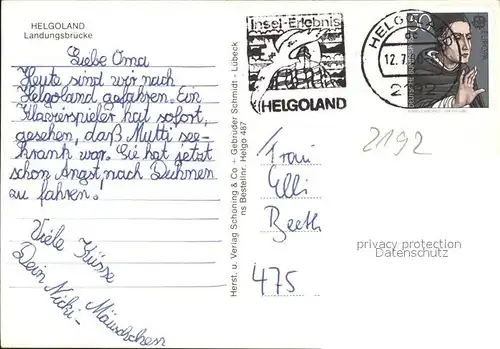 HELGOLAND
Landungsbrücke
Liebe Oma
Heute sind wir nach
Helgoland gefahren. Ein
Klavierspieler hat sofort,
gesehen, daß Mutti see-
krank war. Sie hat jetzt
schon Angst nach Duhnen
zu fahren!
Viele Küsse
Dein Nicki-
Mäuschchen
Herst. u. Verlag Schöning & Co + Gebrüder Schmidt - Lübeck
ns Bestellnr. Helgo 487
Insel-Erlebnis
HELGOLAND
12.7.80
2192
50
EUROPA
2192
Frau
Elli
475
privacy protection
Datenschutz